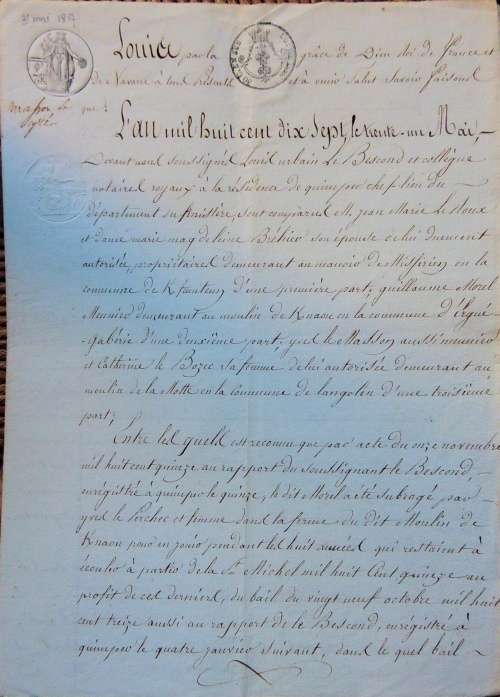 31 mai 1817
Louis par la grâce de Dieu Roi de france et
de Navarre à tous présents et à venir Salut Savoir faisons
que :
L'an mil huit cent dix Sept, le trente-un Mai,
Devant nous soussignés Louis urbain Le Bescond et collègue
notaires royaux à la résidence de quimper chef lieu du
département du finistère, sont comparus M. jean Marie Le
et dame marie magdeleine Bréhier son épouse de lui duement
autorisée, propriétaires demeurant au manoir de en la
commune de Kfeunteun d'une première part, guillaume Morel
Meunier demeurant au moulin de Knaou en la commune d'Ergué
-gabéric d'une deuxième part, yves le Masson aussi meunier
et Catherine le Bozec sa femme de lui autorisée demeurant au
moulin de la Motte en la Commune de langolen d'une troisième
part;
Entre les quels est reconnu que par acte du onze novembre
mil huit cent quinze au rapport du soussignant le Bescond,
enrégistré à quimper le quinze, le dit Morel a été subrogé par
yves le Perchec et femme dans la ferme du dit Moulin de
Knaou pour en jouir pendant les huit années qui restaient à
écouler à partir de la St. Michel mil huit Cent quinze au
profit de ces derniers, du bail du vingt neuf octobre mil huit
cent treize aussi au rapport de le Bescond, enrégistré à
quimper le quatre janvier suivant, dans le quel bail